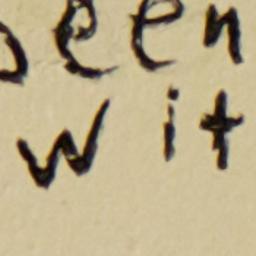 een
wit